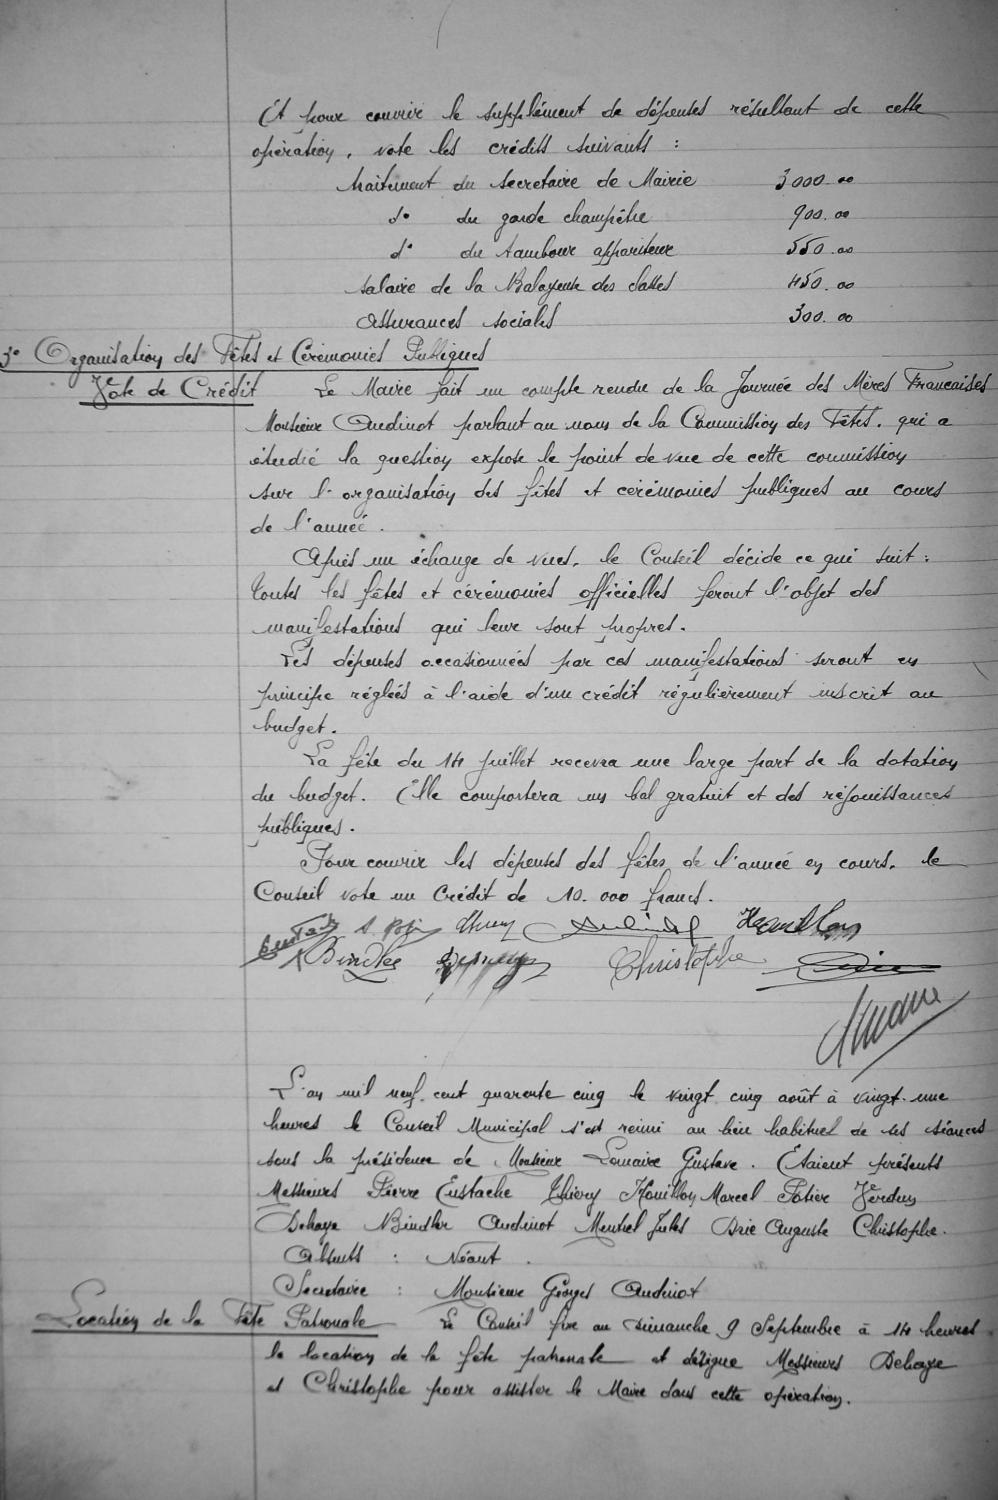 Et pour couvrir le supplément de dépenses résultant de cette
opération, vote les crédits suivants :
traitement du secretaire de Mairie 3000.00
d° du garde champêtre 900.00
d° du tambour appariteur 550.00
salaire de la Balayeuse des classes 450.00
Assurances sociales 300.00
3° Organisation des Fêtes et Cérémonies Publiques
Vote de Crédit Le Maire fait un compte rendu de la Journée des Mères Francaises
Monsieur Audinot parlant au nom de la Commission des Fêtes, qui a
étudié la question expose le point de vue de cette commission
sur l'organisation des fêtes et cérémonies publiques au cours
de l'année.
Après un échange de vues, le Conseil décide ce qui suit :
Toutes les fêtes et cérémonies officielles feront l'objet des
manifestations qui leur sont propres.
Les dépenses occasionnées par ces manifestations seront en
principe réglées à l'aide d'un crédit régulièrement inscrit au
budget.
La fête du 14 juillet recevra une large part de la dotation
du budget. Elle comportera un bal gratuit et des réjouissances
publiques.
Pour couvrir les dépenses des fêtes, de l'année en cours, le
Conseil vote un Crédit de 10.000 francs.
Bindler Christophe
L'an mil neuf cent quarante cinq le vingt cinq août à vingt-une
heures le Conseil Municipal s'est réuni au lieu habituel de ses séances
sous la présidence de Monsieur Lemaire Gustave. Etaient présents
Messieurs Pierre Eustache Thiery Houillon Marcel Potier Verdun
Dehaye Bindler Audinot Mentrel Jules Drie Auguste Christophe.
Absents : Néant.
Secretaire : Monsieur Georges Audinot
Location de la Fête Patronale Le Conseil fixe au Dimanche 9 Septembre à 14 heures
la location de la fête patronale et désigne Messieurs Dehaye
et Christophe pour assister le Maire dans cette opération.